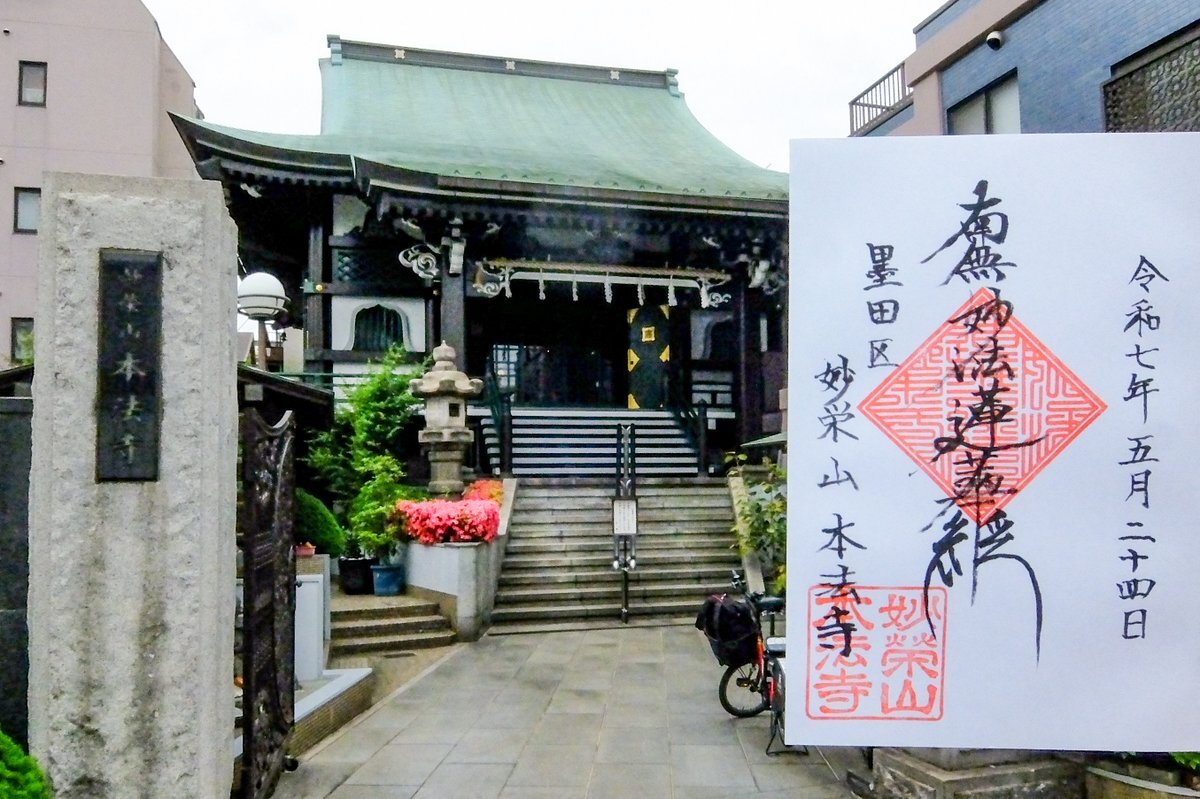 妙栄山本法寺
令和七年五月二十四日
南無妙法蓮華経
墨田区
妙栄山本法寺
妙榮山
本法寺